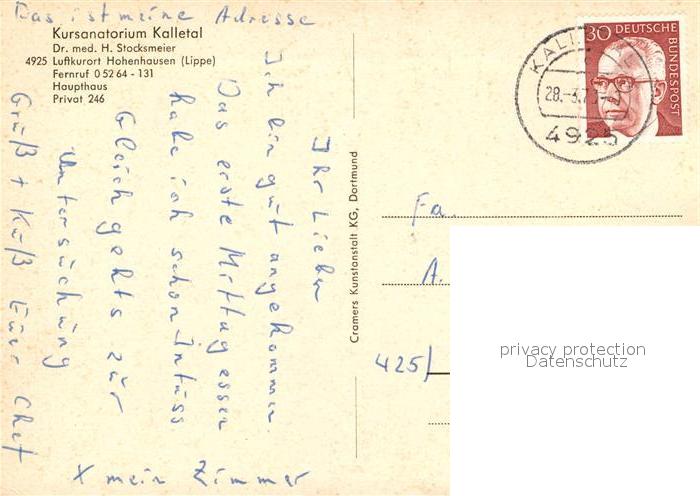 Das ist meine Adresse
Kursanatorium Kalletal
Dr. med. H. Stocksmeier
4925 Luftkurort Hohenhausen (Lippe)
Fernruf 0 52 64 - 131
Haupthaus
Privat 246
Ihr Lieben
Ich bin gut angekommen.
Das erste Mittagessen
habe ich schon Intuss
Gleich gehts zur
Untersuchung
Gruß + Kuß Euer Chef
x mein Zimmer
Cramers Kunstanstalt KG, Dortmund
30 DEUTSCHE BUNDESPOST
28.-3.73
4925
Fa.
A.
425/
privacy protection
Datenschutz